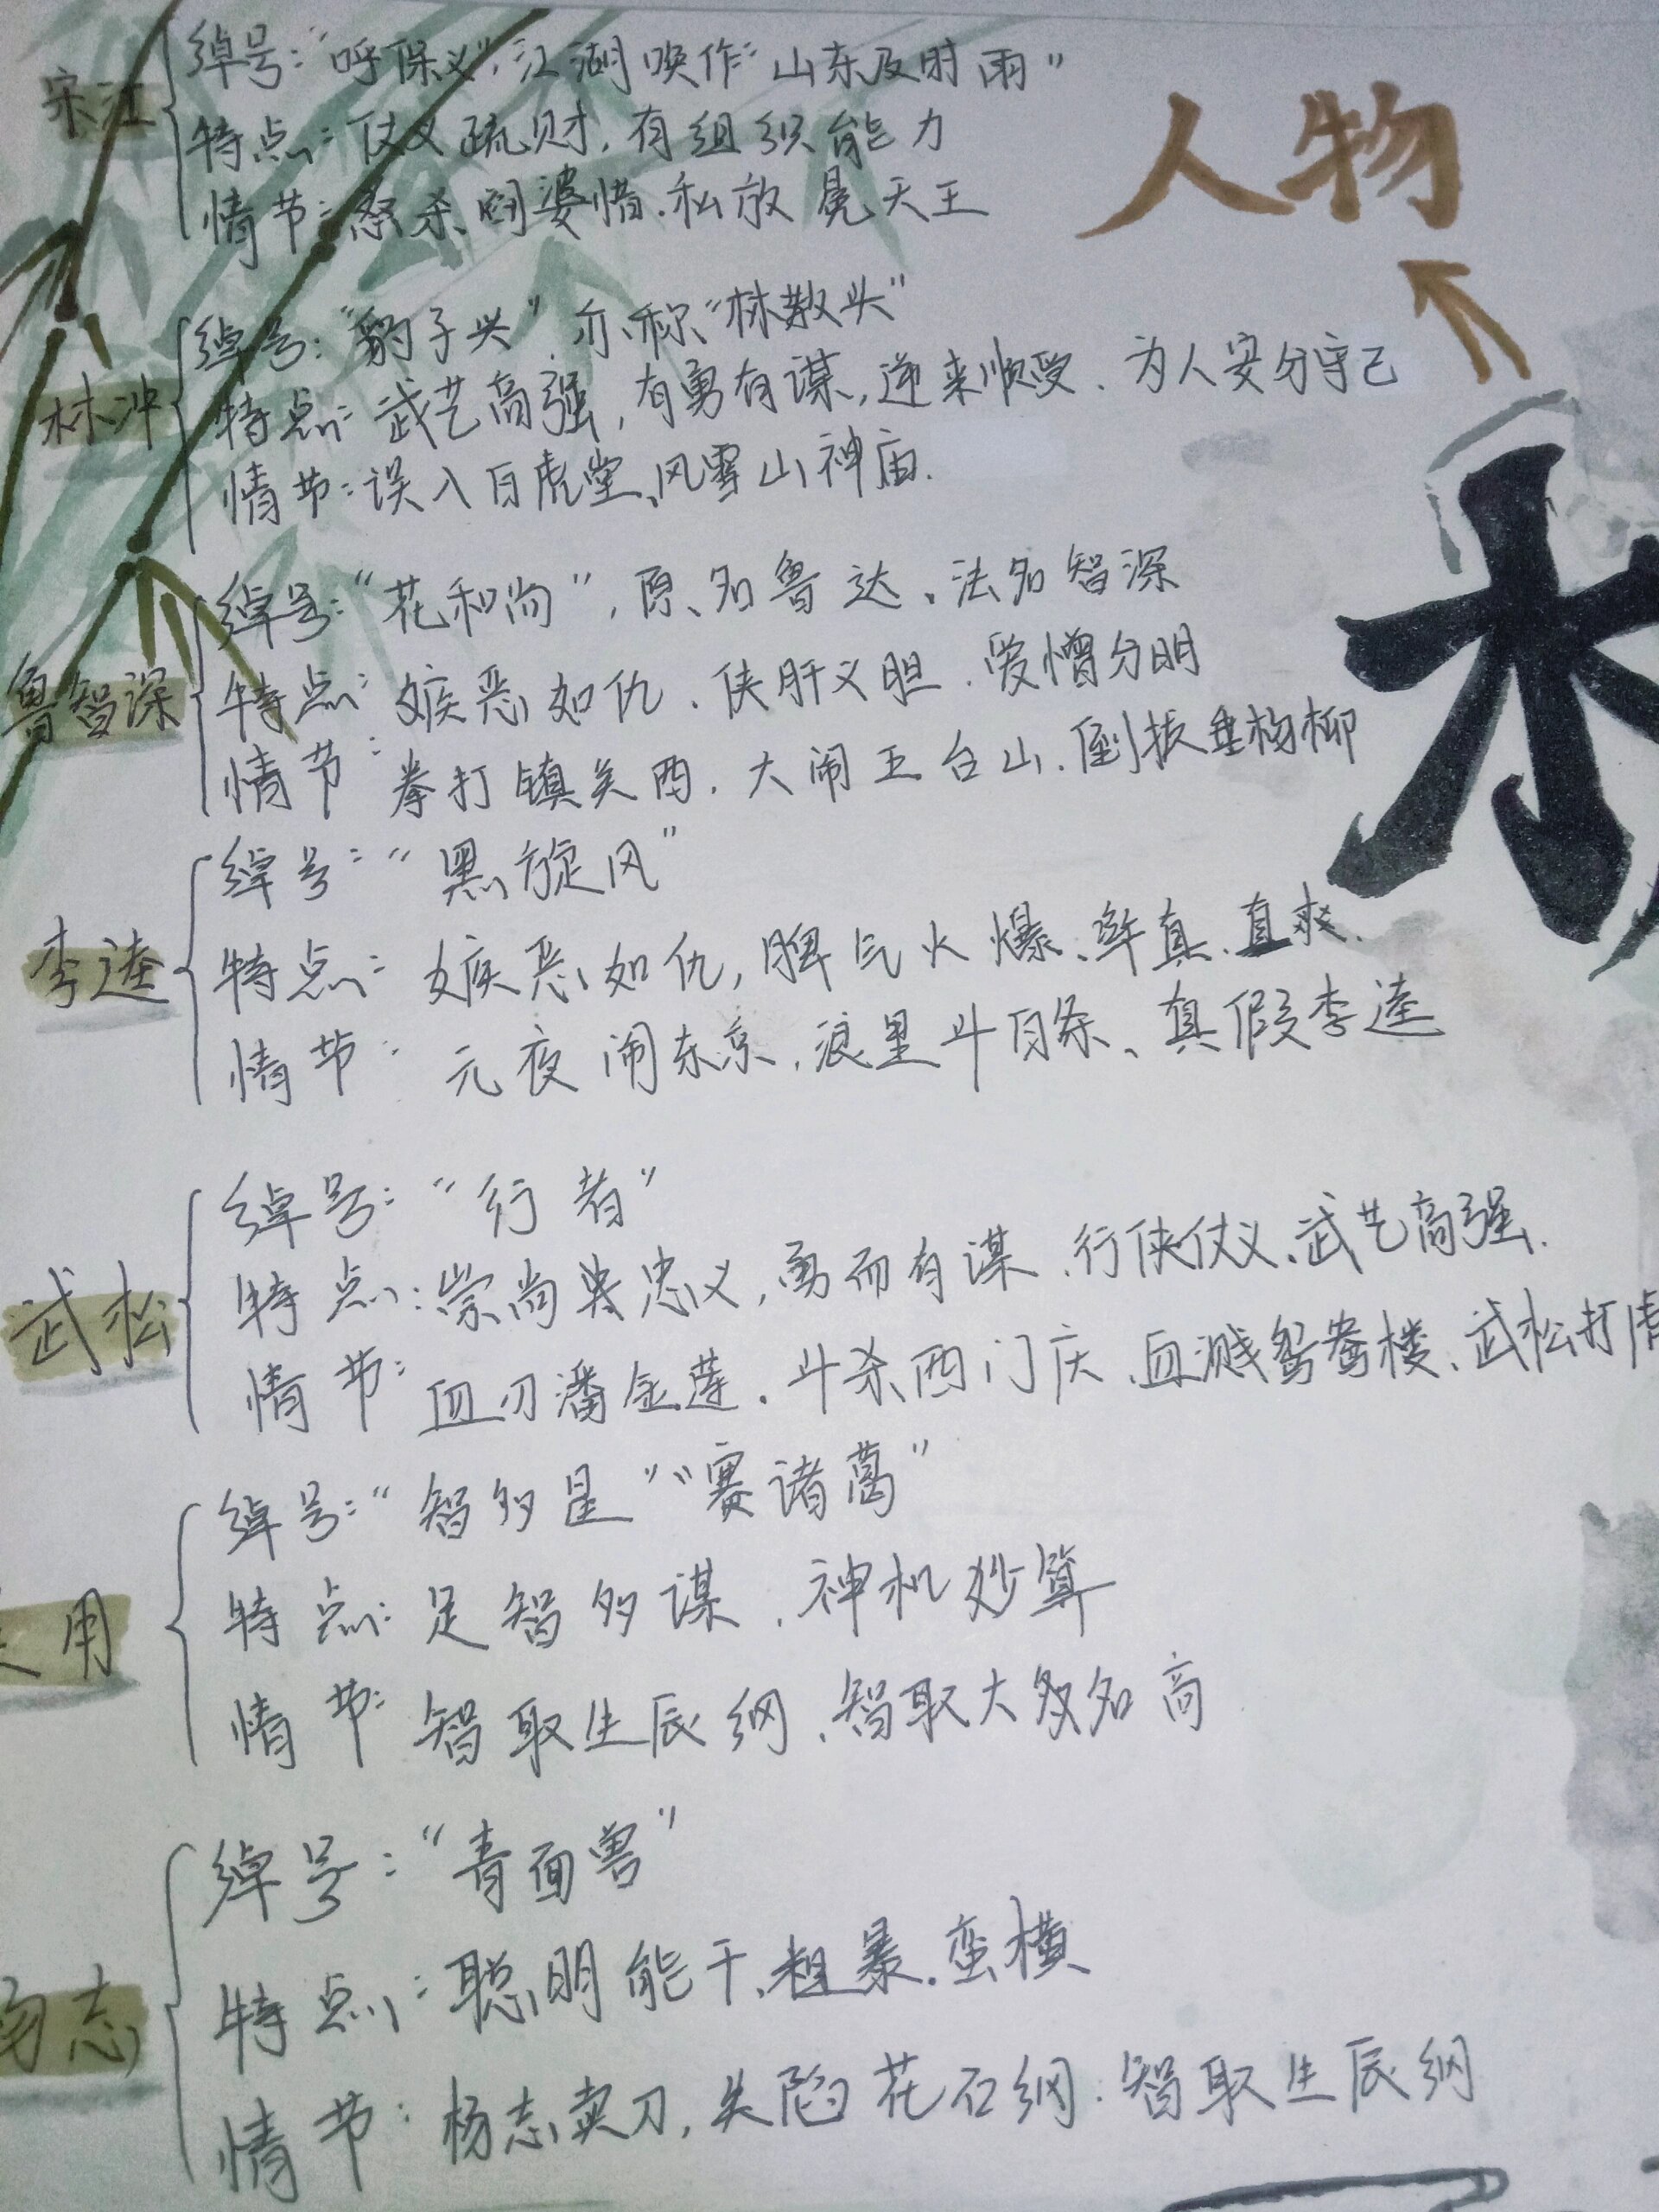 人物
水
宋江
绰号:“呼保义”,江湖唤作“山东及时雨”
特点:仗义疏财,有组织能力
情节:怒杀阎婆惜.私放晁天王
林冲
绰号:“豹子头”,亦称“林教头”
特点:武艺高强,有勇有谋,逆来顺受、为人安分守己
情节:误入白虎堂、风雪山神庙.
鲁智深
绰号:“花和尚”,原名鲁达、法名智深
特点:嫉恶如仇、侠肝义胆.爱憎分明
情节:拳打镇关西.大闹五台山.倒拔垂杨柳
李逵
绰号:“黑旋风”
特点:嫉恶如仇,脾气火爆、率真、直爽.
情节:元夜闹东京,浪里斗白条、真假李逵
武松
绰号:“行者”
特点:崇尚忠义,勇而有谋、行侠仗义、武艺高强.
情节:血刃潘金莲.斗杀西门庆、血溅鸳鸯楼、武松打虎
用
绰号:“智多星”“赛诸葛”
特点:足智多谋、神机妙算
情节:智取生辰纲、智取大名高
杨志
绰号:“青面兽”
特点:聪明能干、粗暴.蛮横
情节:杨志卖刀,失陷花石纲.智取生辰纲